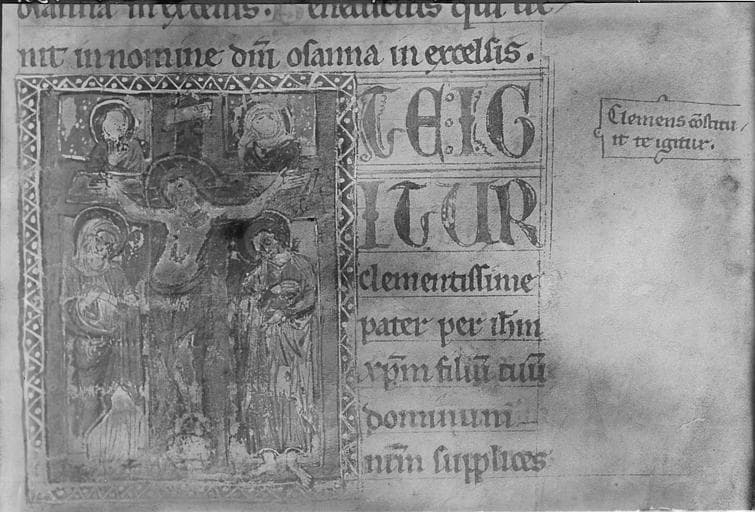 osanna in excelsis. Benedictus qui ue
nit in nomine dñi osanna in excelsis.
TE IG
ITUR
clementissime
pater per ihm
xpm filiũ tuũ
dominum
nrm supplices
Clemens cõstitu
it te igitur.